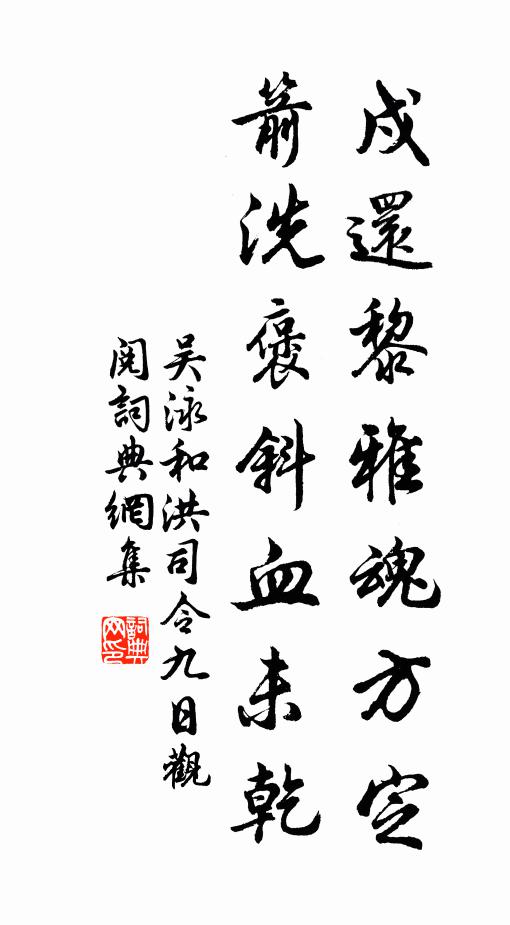 戍還黎雅魂方定
箭洗褒斜血未乾
吴泳和洪司令九日觀
閱詞典網集
詞典
网印